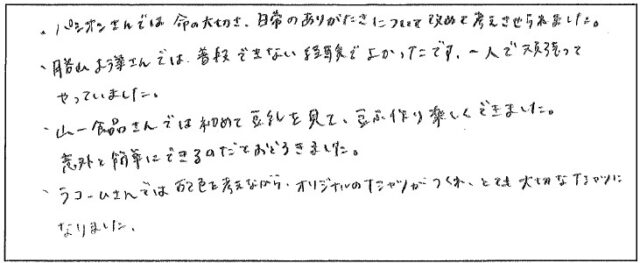 ・パシオンさんでは命の大切さ、日常のありがたさについて改めて考えさせられました。
・勝山お弾さんでは、普段できない経験でよかったです。一人で頑張って
やっていました。
・山一食品さんでは初めて豆乳を見て、豆ふ作り楽しくできました。
意外と簡単にできるのだなとおどろきました。
・ラコームさんでは配色を考えながら、オリジナルのTシャツがつくれ、とても大切なTシャツに
なりました。